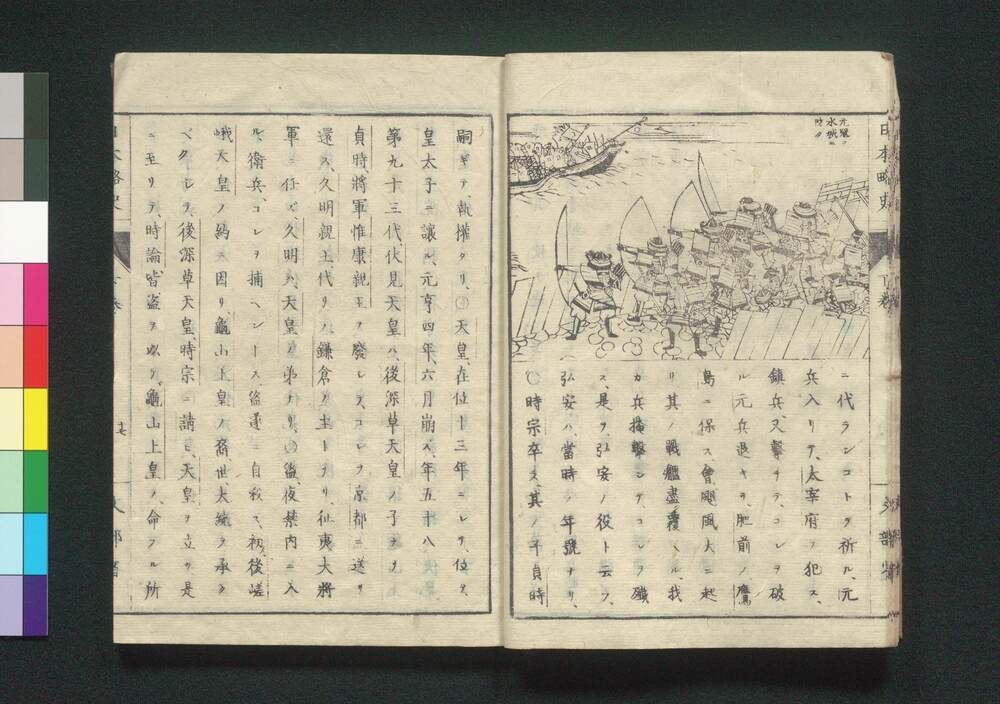 日本略史
下巻
文部省
ニ代ランコトヲ祈ル、元
兵入リテ、太宰府ヲ犯ス、
鎮兵、又撃チテ、コレヲ破
ル元兵退キテ、肥前ノ鷹
島ニ保ス、會颶風大ニ起
リ其ノ戰艦盡覆ヘル、我
カ兵掩撃シテ、コレヲ殲
ス、是ヲ弘安ノ役ト云フ、
弘安ハ、當時ノ年號ナリ、
〇時宗卒ス、其ノ子貞時
嗣ギテ、執權タリ、〇天皇、在位十三年ニシテ、位ヲ、
皇太子ニ讓ル元亨四年、六月崩ス、年五十八
第九十三代伏見天皇ハ、後深草天皇ノ子ナリ
貞時將軍惟康親王ヲ廢シテコレヲ京都ニ送リ
還ス、久明親王代リテ、鎌倉ノ主トナリ、征夷大將
軍ニ任ズ、久明ハ、天皇ノ弟ナリ、〇盗、夜禁内ニ入
ル、衛兵、コレヲ捕ヘントス、盗遂ニ自殺ス、初、後嵯
峨天皇ノ約ニ因リ龜山上皇ノ裔、世、大統ヲ承ク
ベクシテ、後深草天皇、時宗ニ請ヒ、天皇ヲ立ツ是
ニ至リテ、時論皆盗ヲ以テ、龜山上皇ノ、命ズル所